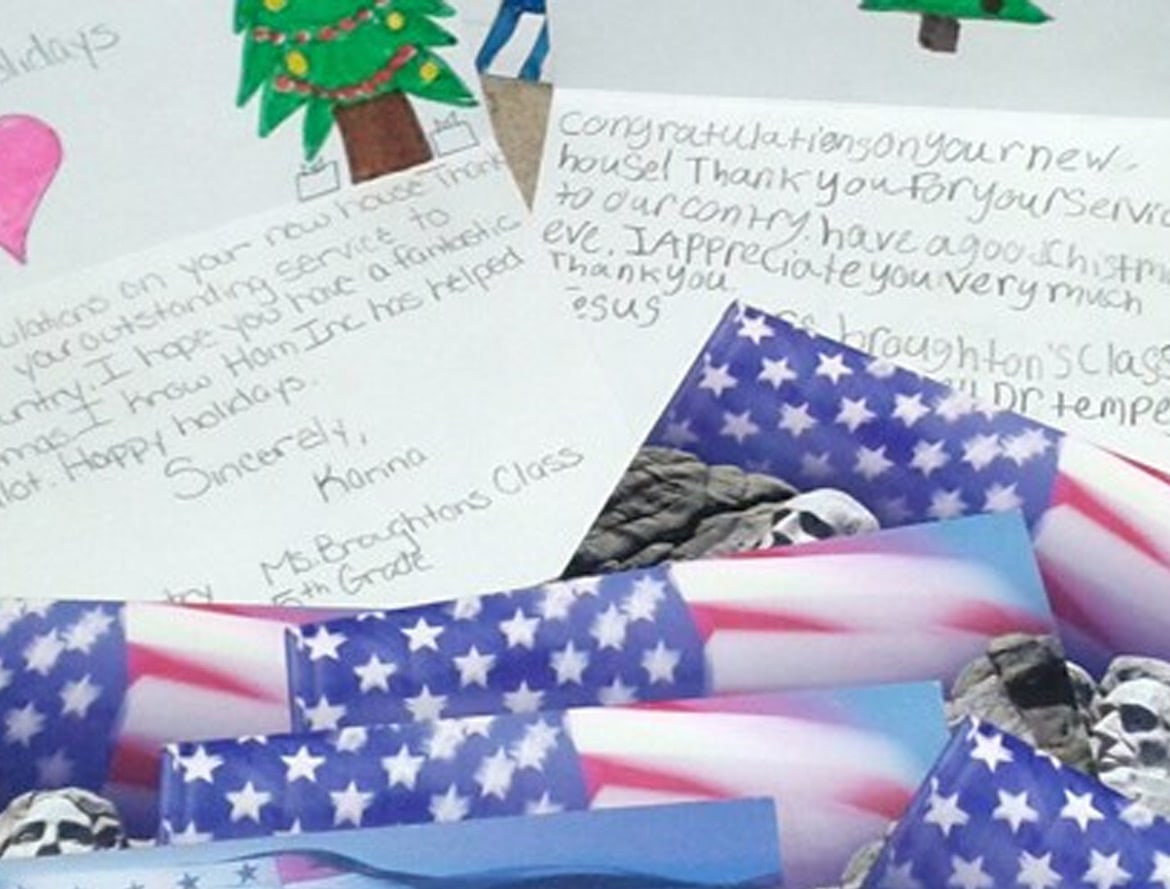 olidays
ulations on your new house Thank
your outstanding service to
untry. I hope you have a fantastic
mas I know Hom Inc has helped
lot. Happy holidays.
Sincerely,
Karina
Ms. Broughtons Class
5th Grade
try
Congratulations on your new
house! Thank you for your Servic
to our contry. have a good Chistm
eve. I Appreciate you very much
Thank you
esus
broughton's Class
Dr tempe